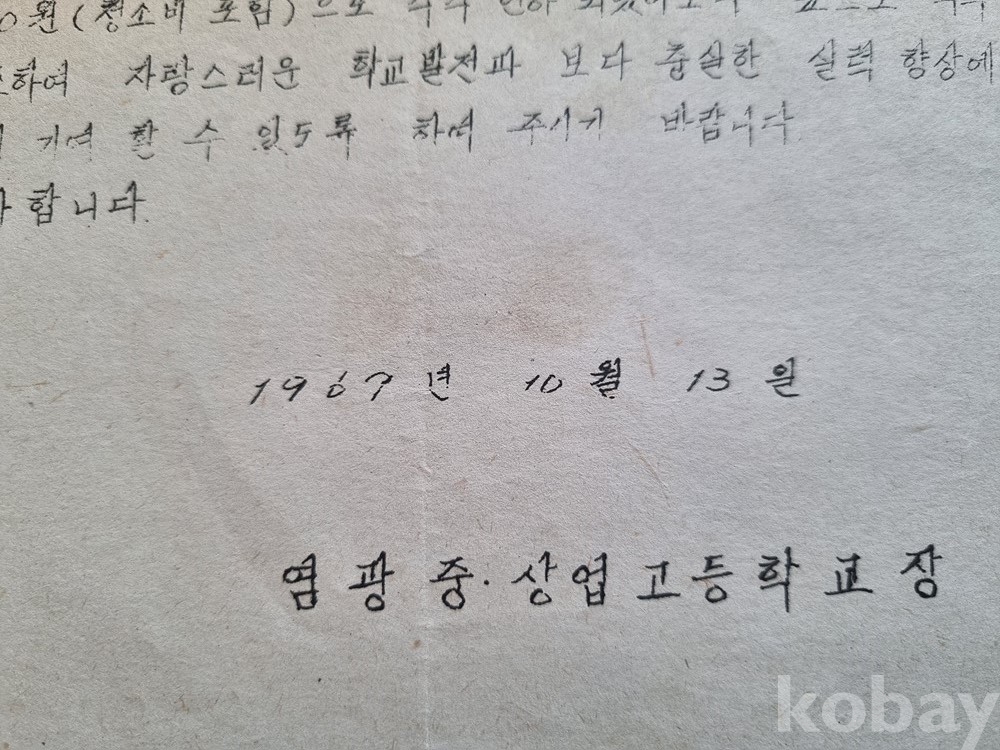 0원(청소비 포함)으로 각각
하여 자랑스러운 학교발전과 보다 충실한 실력 향상에
기여 할 수 있도록 하여 주시기 바랍니다.
합니다.
1967년 10월 13일
염광 중·상업고등학교장
kobay